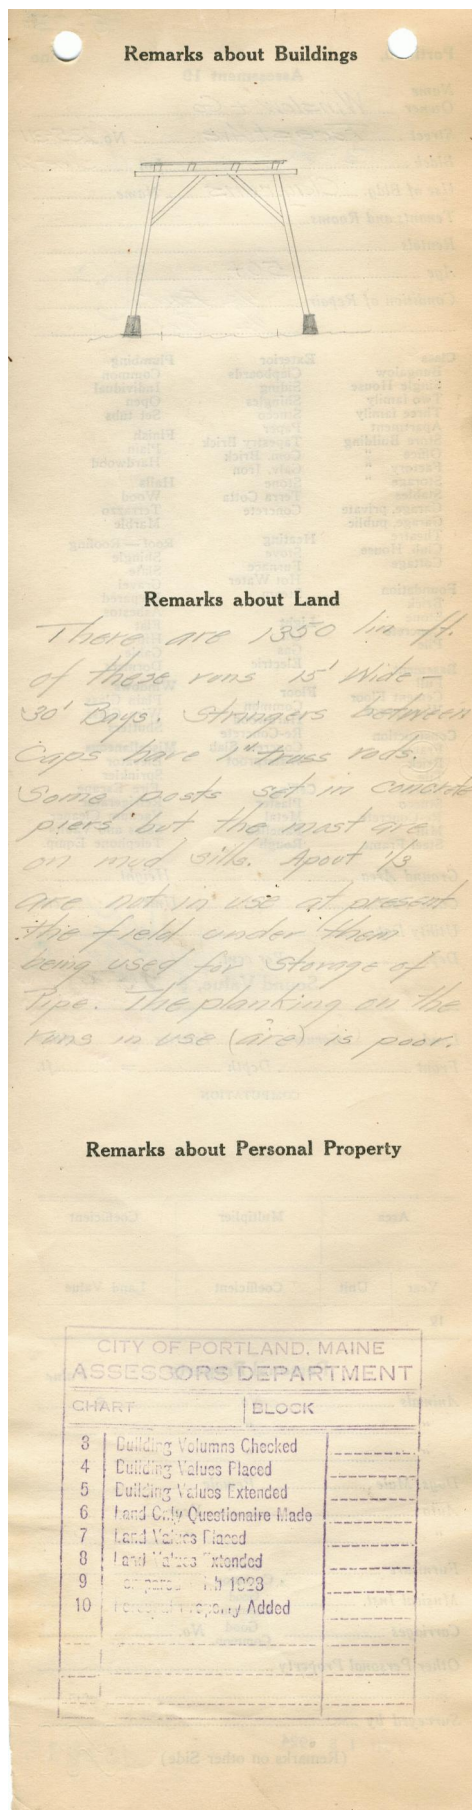 Remarks about Buildings
Remarks about Land
There are 1350 lin ft.
of these runs 15' Wide –
30' Bays. Stringers between
Caps have 1" truss rods.
Some posts set in concrete
piers but the most are
on mud sills. About 1/3
are not in use at present
the field under them
being used for storage of
Pipe. The planking on the
runs in use (are)? is poor.
Remarks about Personal Property
CITY OF PORTLAND, MAINE
ASSESSORS DEPARTMENT
CHART BLOCK
3 Building Volumns Checked
4 Building Values Placed
5 Building Values Extended
6 Land Only Questionaire Made
7 Land Values Placed
8 Land Values Extended
9 1923
10 Personal Property Added